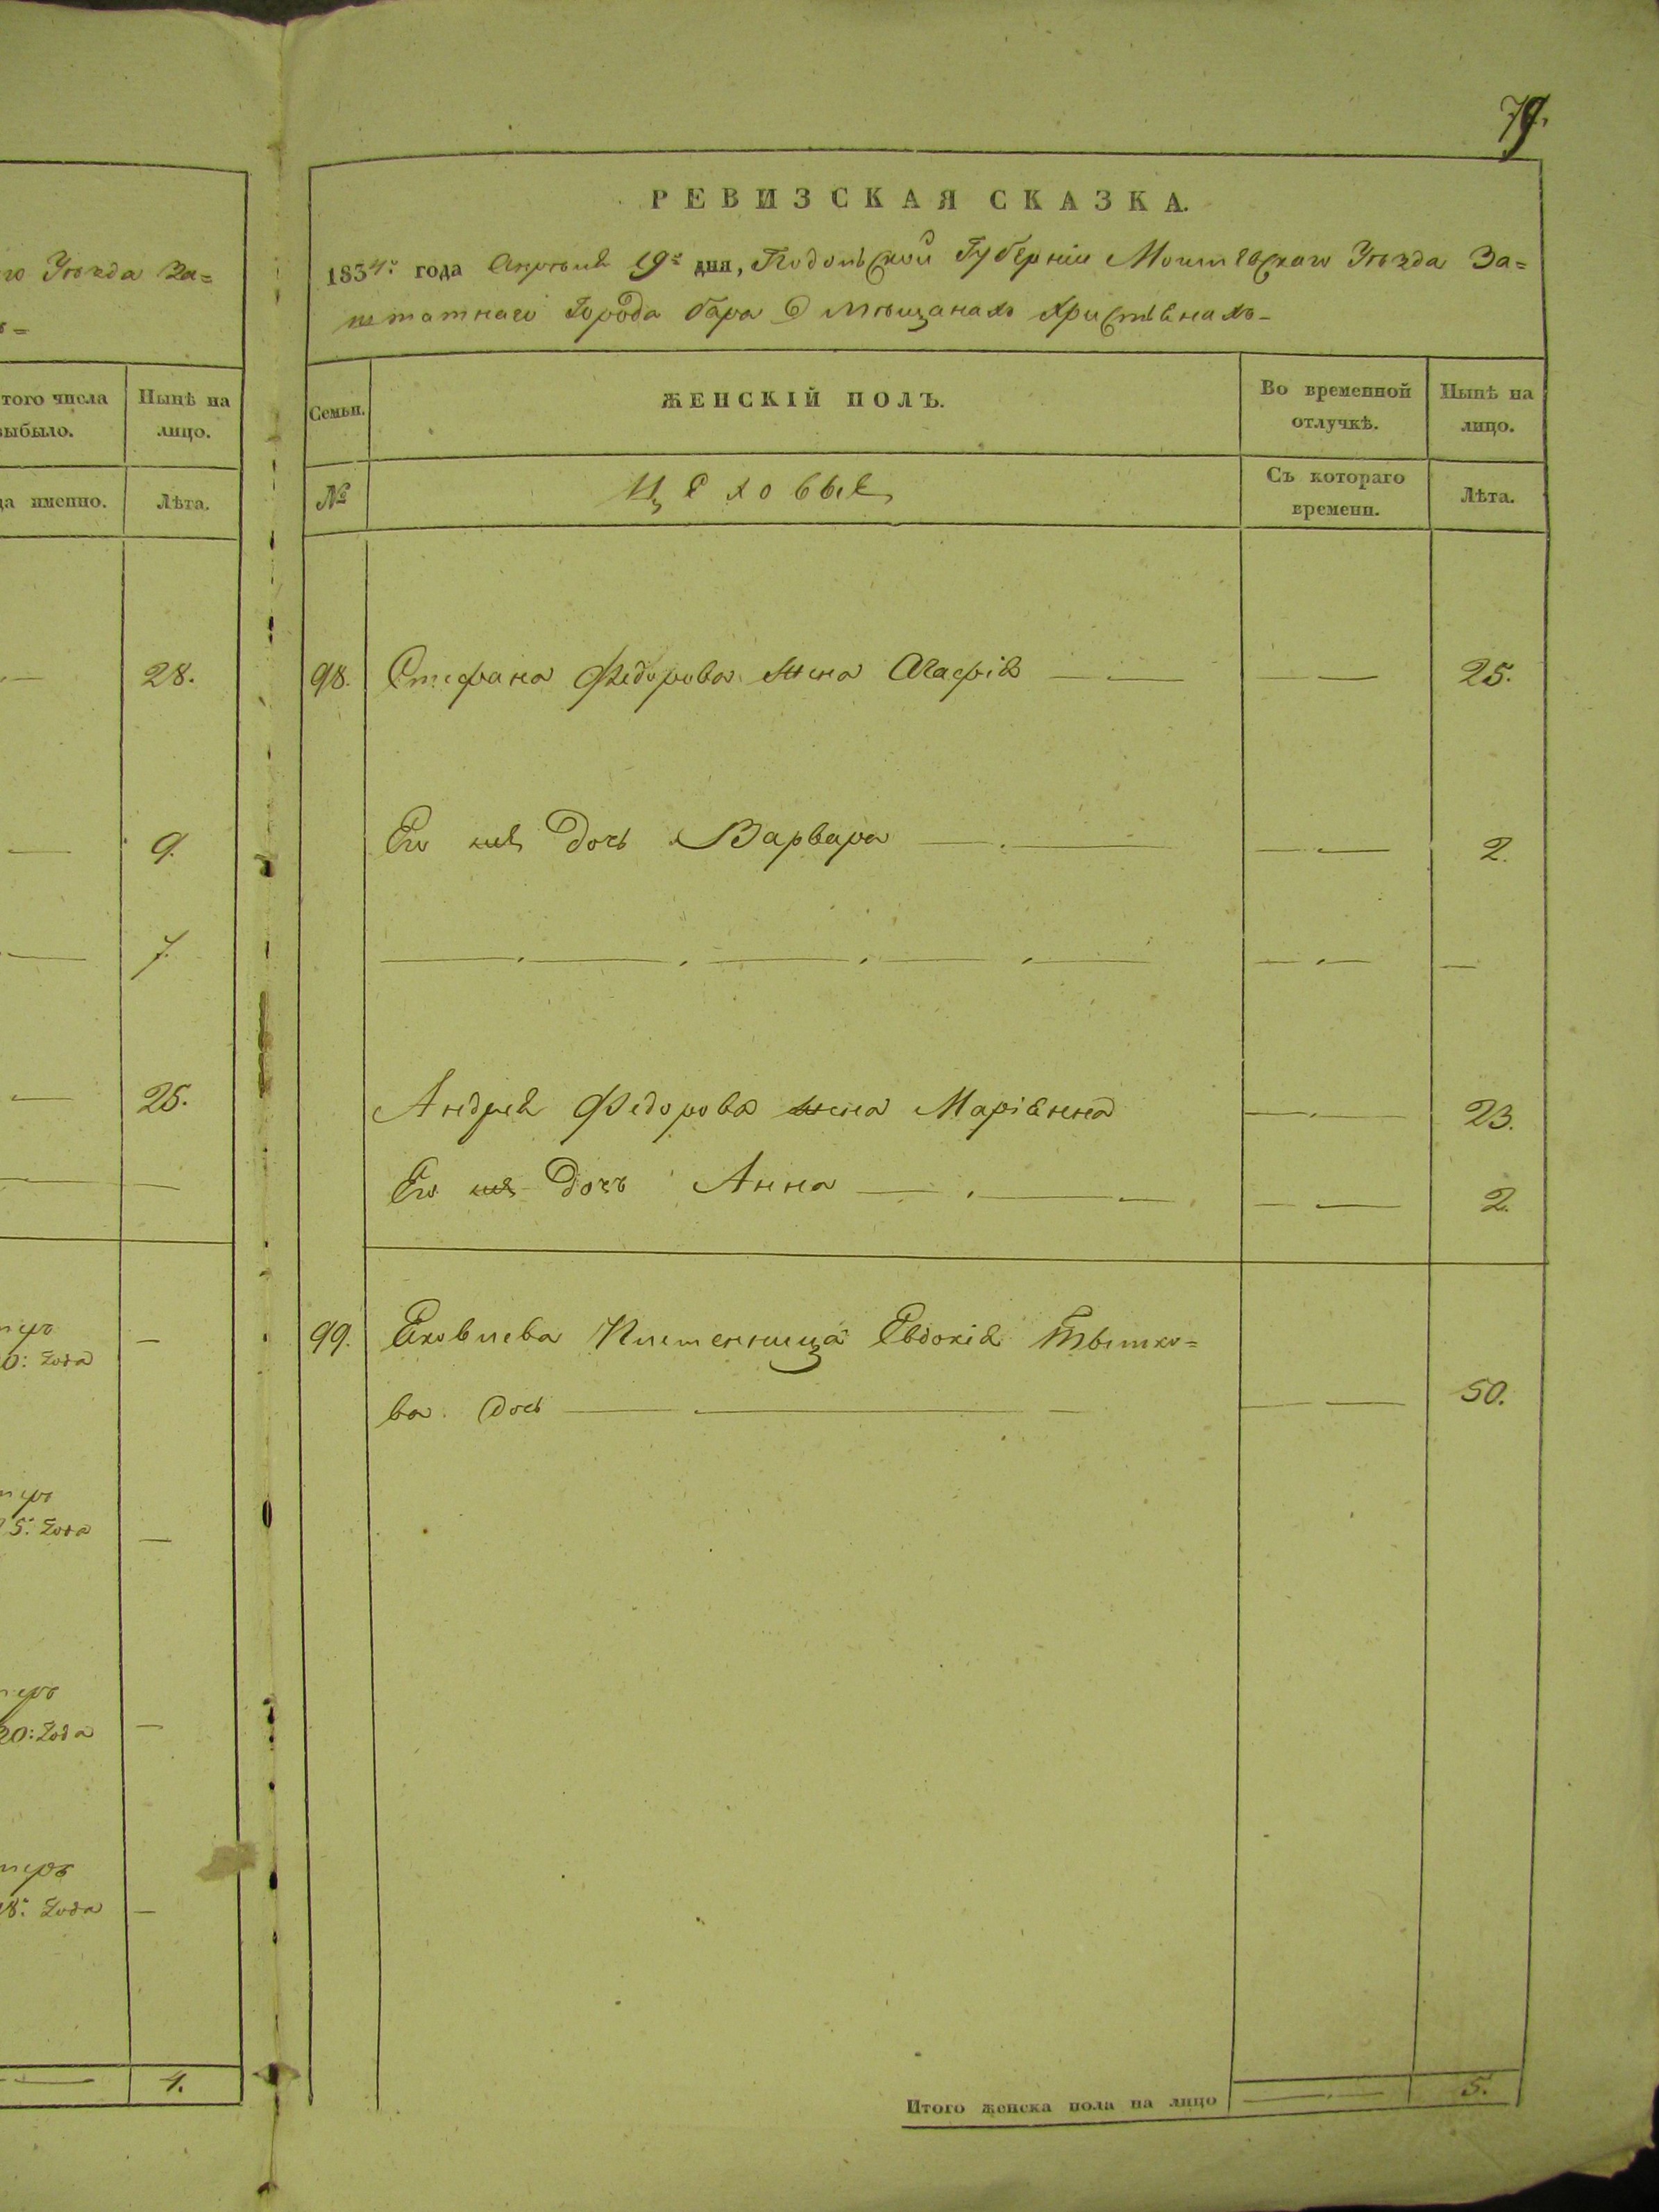 79.
го Уѣзда За=
того числа
выбыло.
Нынѣ на
лицо.
да именно.
Лѣта.
28.
9.
7.
25.
0: года
5: года
20: года
18: года
4.
РЕВИЗСКАЯ СКАЗКА.
1834: года Апрѣля 19: дня, Подольской Губерніи Могилевскаго Уѣзда За=
штатнаго Города Бара о мѣщанахъ христіянахъ
Семьи.
ЖЕНСКІЙ ПОЛЪ.
Во временной
отлучкѣ.
Нынѣ на
лицо.
№
Цеховые
Съ котораго
времени.
Лѣта.
98. Стефана Федорова жена Агафія 25.
Его же дочь Варвара 2.
Андрея Федорова жена Маріянна 23.
Его же дочъ Анна 2.
99. Евдокія
ва дочь 50.
Итого женска пола на лицо 5.